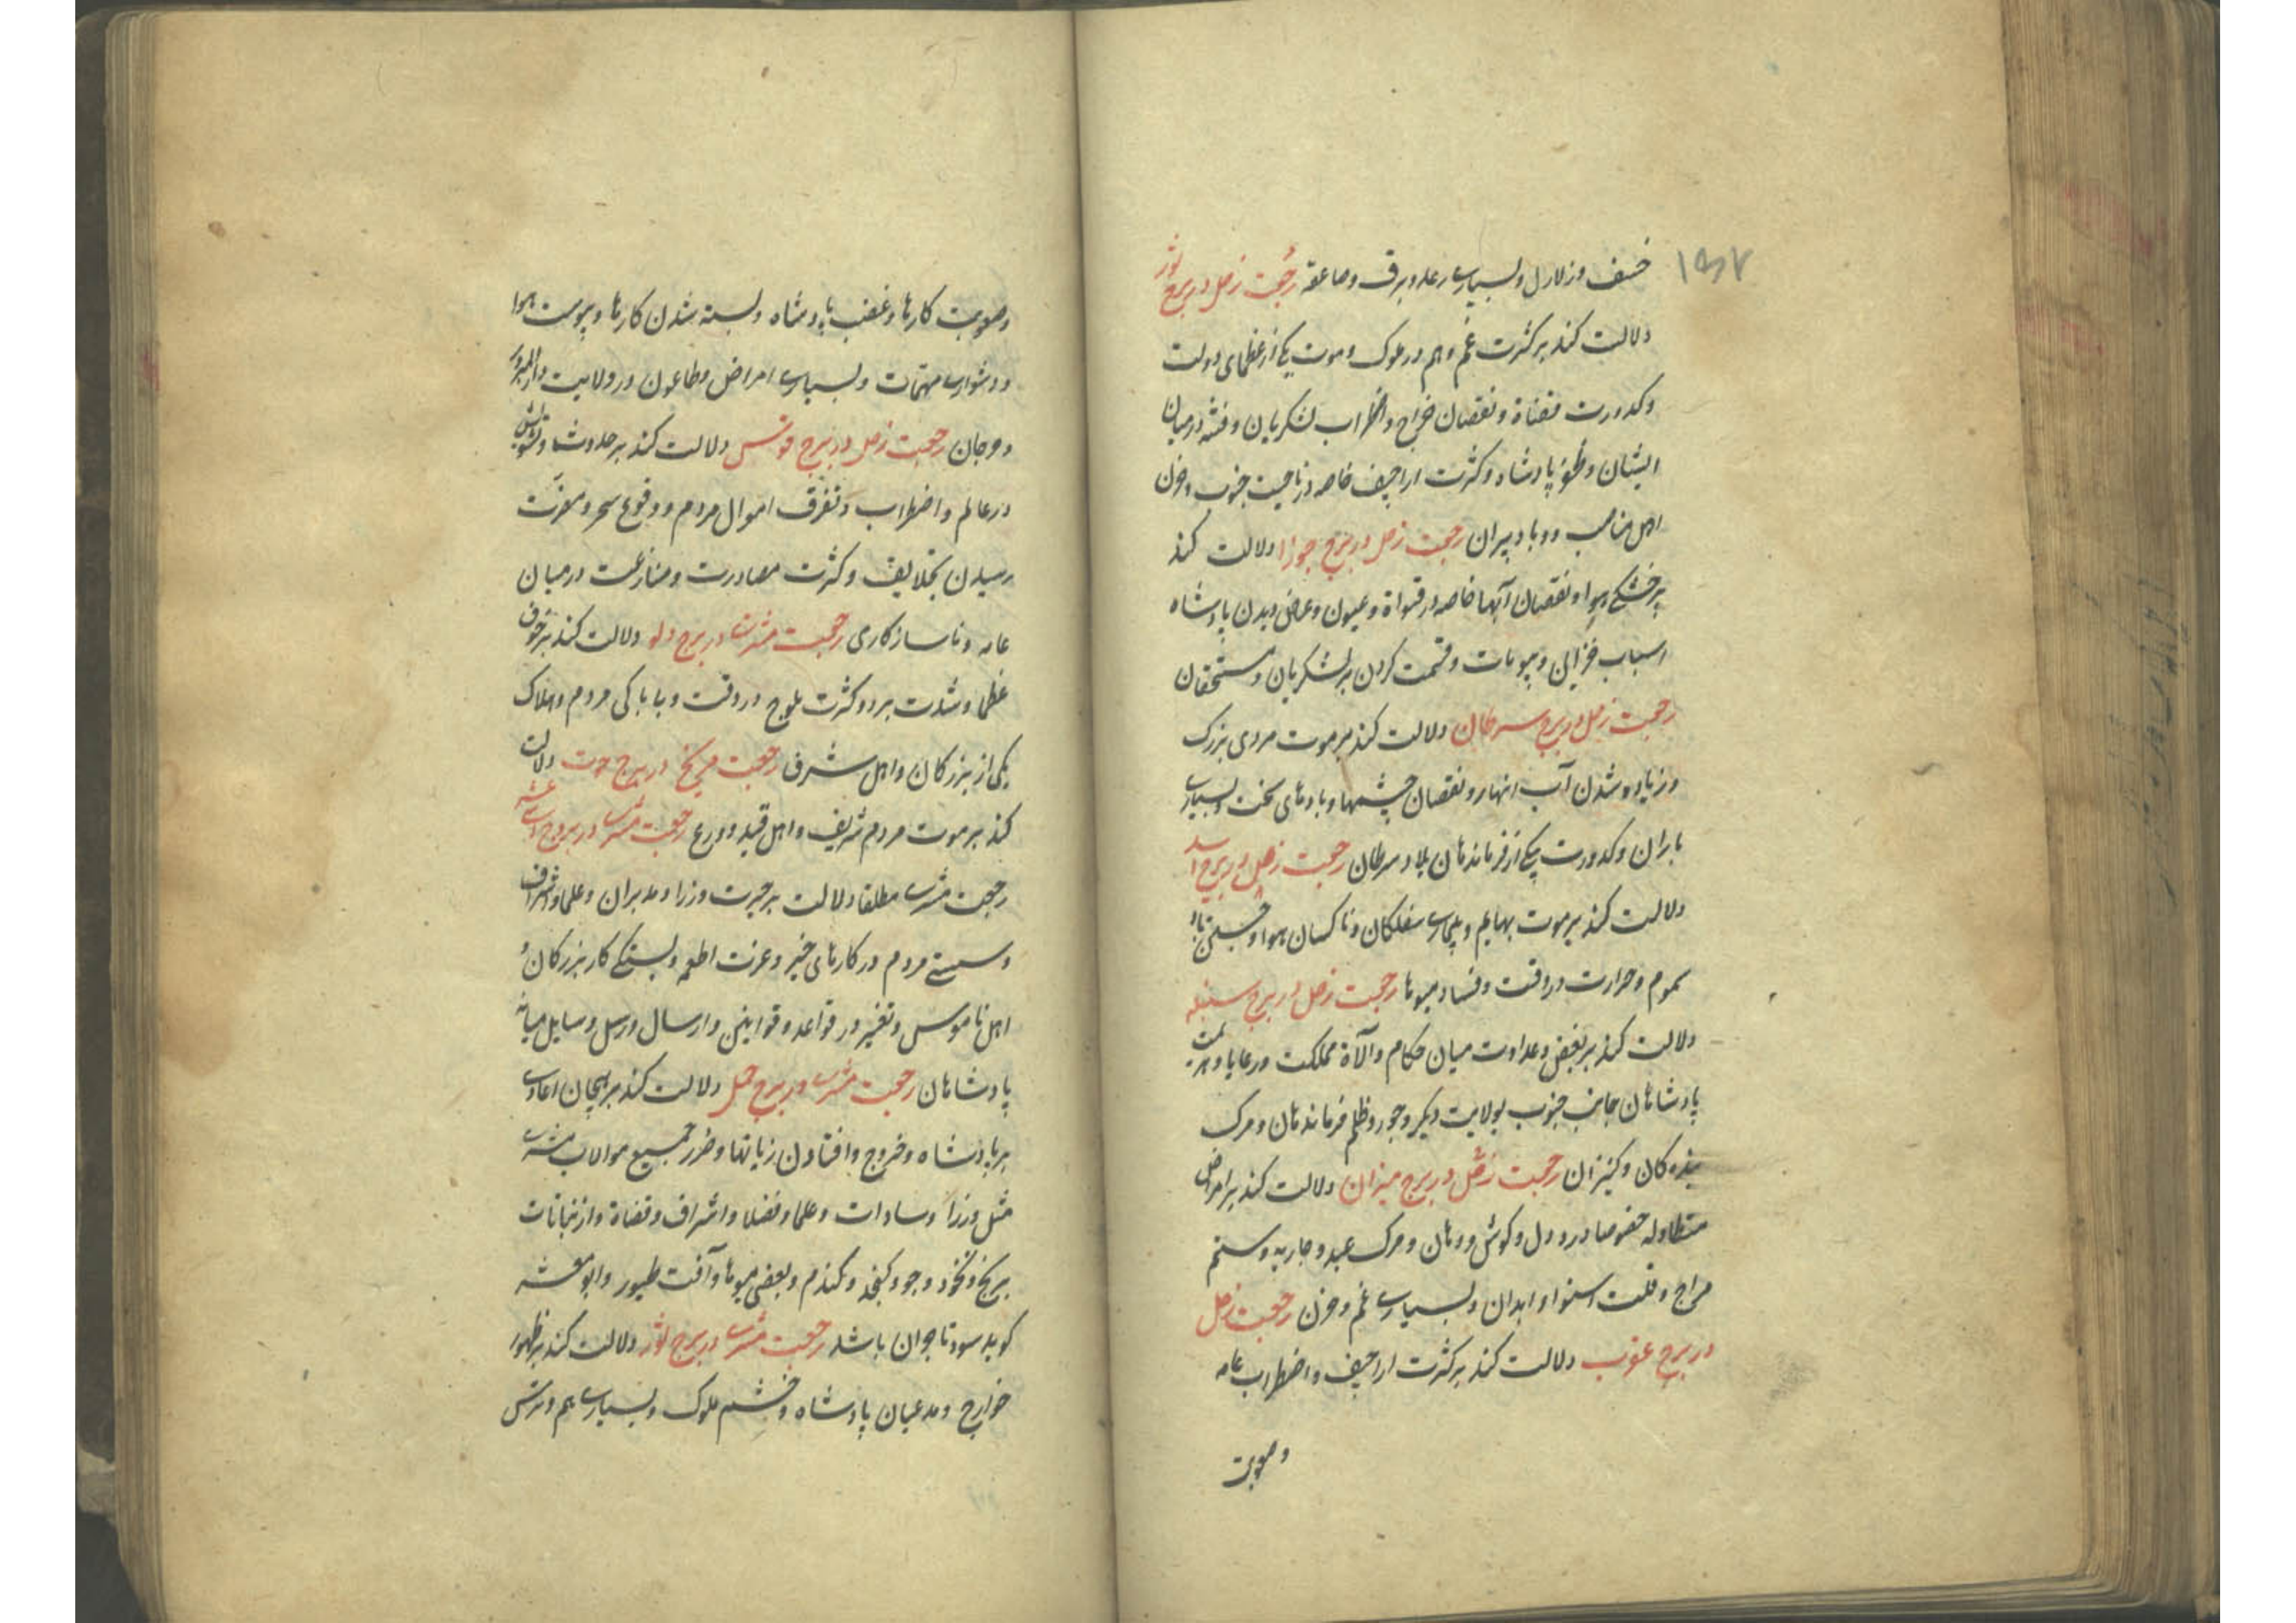 ۱۵۷
خسف و زلازل و بسیاری رعد و برق و صاعقه رجعت زحل در برج ثور
دلالت کند بر کثرت غم و هم در ملوک و موت یکی از عظمای دولت
و کدورت قضاة و نقصان خراج و اضطراب لشکریان و فتنه در میان
ایشان و پادشاه و کثرت اراجیف خاصه در ناحیت جنوب و حزن
اهل مناصب و وبا و پیران رجعت زحل در برج جوزا دلالت کند
بر خشکی هوا و نقصان آبها خاصه در قنواة و عیون و عارض دیدن پادشاه
اسباب خزاین و بیوتات و قسمت کردن بر لشکریان و مستحقان
رجعت زحل در برج سرطان دلالت کند بر موت مردی بزرک
و زیاده شدن آب انهار و نقصان چشمها و بادهای سخت و بسیاری
باران و کدورت یکی از فرماندهان بلاد سرطان رجعت زحل در برج اسد
دلالت کند بر موت بهایم و بیماری سفلکان و ناکسان هوا و
سموم و حرارت در وقت و فساد میوها رجعت زحل در برج سنبله
دلالت کند بر بغض و عداوت میان حکام و الاة مملکت و رعایا و هزیمت
پادشاهان جانب جنوب بولایت دیکر و جور و ظلم فرماندهان و مرک
بنده کان و کنیزان رجعت زحل در برج میزان دلالت کند بر امراض
متطاوله خصوصا درد دل و کوش و دهان و مرک عبد و جاریه و سقم
مزاج و قلت استوا و ابدان و بسیاری غم و حزن رجعت زحل
در برج عقرب دلالت کند بر کثرت اراجیف و اضطراب عامه
و صعوبت
و صعوبت کارها و غضب پادشاه و بسته شدن کارها و یبوست هوا
و دشواری مهمات و بسیاری امراض و طاعون در ولایت دارالمرز
و جرجان رجعت زحل در برج قوس دلالت کند بر حدوث و تشویش
در عالم و اضطراب و تفرق اموال مردم و وقوع سحر و مضرت
رسیدن بخلایق و کثرت مصادرت و منازعت در میان
عامه و ناسازکاری رجعت مشتری در برج دلو دلالت کند بر خوف
عظما و شدت برد و کثرت ثلوج در وقت و بیباکی مردم و هلاک
یکی از بزرکان و اهل شرف رجعت مریخ در برج حوت دلالت
کند بر موت مردم شریف و اهل قید و ورع رجعت مشتری در بروج اثنی عشر
رجعت مشتری مطلقا دلالت بر حیرت وزرا و مدبران و علما و اشراف
و سستی مردم در کارهای خیر و عزت اطعمه و بستکی کار بزرکان و
اهل ناموس و تغییر در قواعد و قوانین و ارسال و رسل و رسایل میانه
پادشاهان رجعت مشتری در برج حمل دلالت کند بر هیجان اعادی
بر پادشاه و خروج و افتادن زیانها و ضرر جمیع موالات مشتری
مثل وزرا و سادات و علما و فضلا و اشراف و قضاة و از نباتات
برنج و نخود و جو و کنجد و کندم و بعضی میوها و آفت طیور و ابو معشر
کوید سود تاجران باشد رجعت مشتری در برج ثور دلالت کند بر ظهور
خوارج و مدعیان پادشاه و خشم ملوک و بسیاری هم و ترس